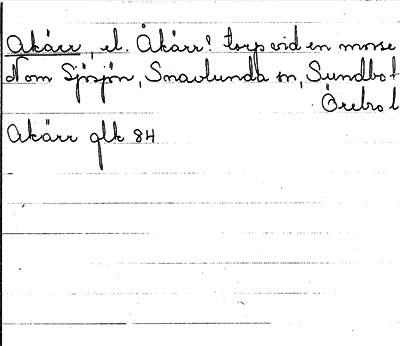 Akärr, el. Åkärr? torp vid en mosse
N om Sjösjön, Snavlunda sn, Sundbo h
Örebro l
Akärr glk 84